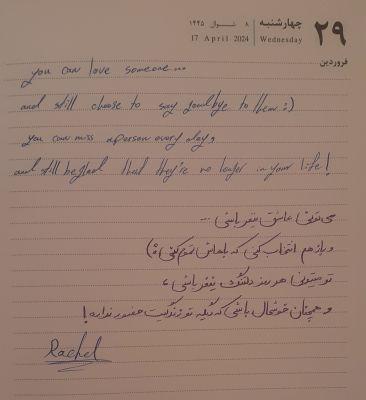 چهارشنبه ۸ شوال ۱۴۴۵ ۲۹
17 April 2024 Wednesday
فروردین
you can love someone...
and still choose to say goodbye to them :)
you can miss a person every day,
and still be glad that they're no longer in your life!
می‌تونی عاشق یه نفر باشی ...
و باز هم انتخاب کنی که باهاش تموم کنی :)
تو میتونی هر روز دلتنگ یه نفر باشی ،
و همچنان خوشحال باشی که دیگه تو زندگیت حضور نداره!
Rachel